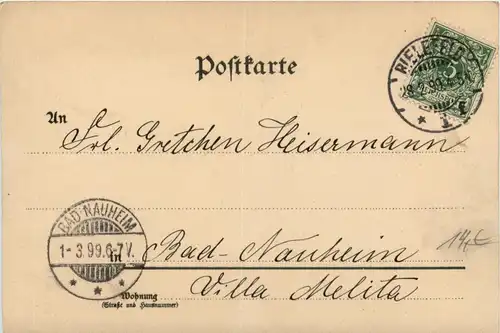 Postkarte
BIELEFELD
An
Frl. Gretchen Heisermann
BAD NAUHEIM
1-3.99.6-7V.
in Bad-Nauheim
14,-€
Villa Melita
Wohnung
(Straße und Hausnummer)